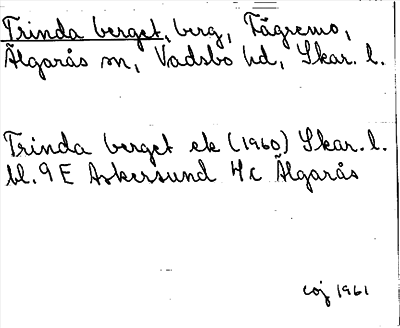 Trinda berget, berg, Fägremo,
Älgarås sn, Vadsbo hd, Skar. l.
Trinda berget ek (1960) Skar. l.
bl. 9 E Askersund 4/c Älgarås
coj 1961